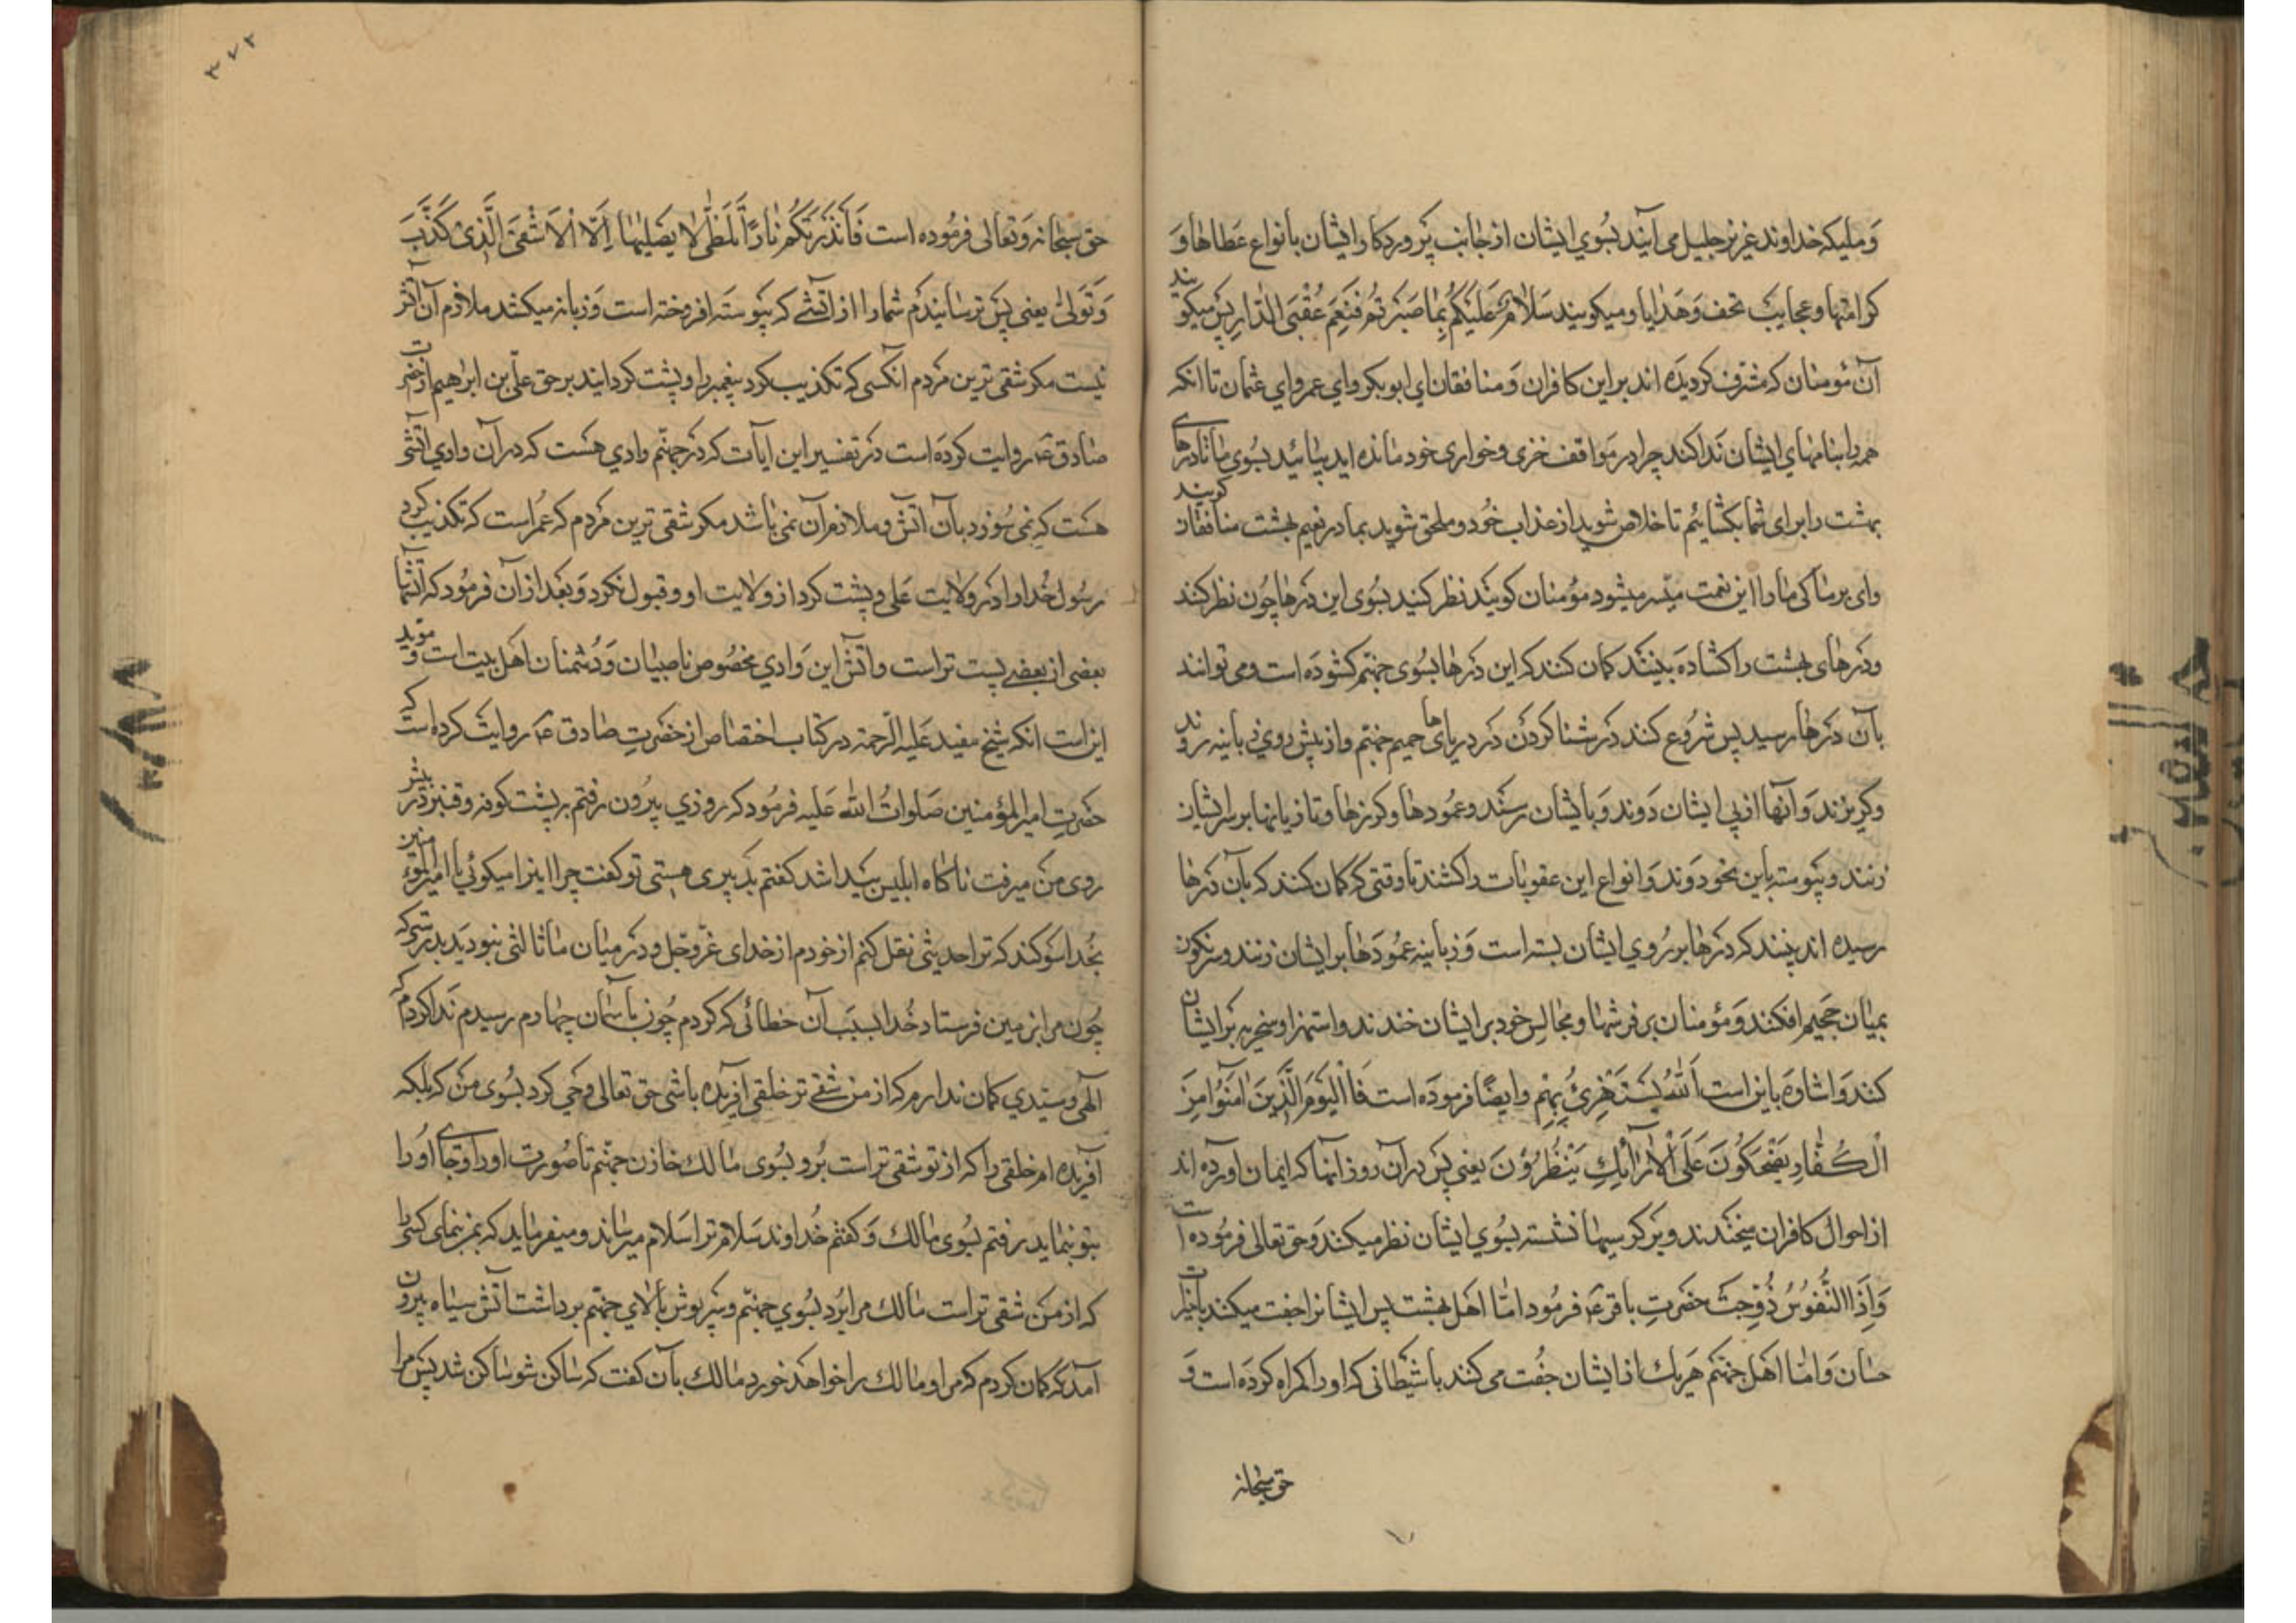 و ملیکه خداوند عزیز جلیل می آیند بسوی ایشان از جانب پروردکار ایشان بانواع عطاها و
کرامتها و عجایب تحف و هدایا و میکویند سَلَامٌ عَلَیْکُمْ بِمَا صَبَرْتُمْ فَنِعْمَ عُقْبَی الدَّارِ پس میکویند
آن مؤمنان که مشرف کردیده اند بر این کافران و منافقان ای ابوبکر و ای عمر و ای عثمان تا انکه
همه را بنامهای ایشان ندا کند چرا در مواقف خزی و خواری خود مانده اید بیائید بسوی ما تا درهای
بهشت را برای شما بکشائیم تا خلاص شوید از عذاب خود و ملحق شوید بما در نعیم بهشت منافقان کویند
وای بر ما کی ما را این نعمت میسر میشود مؤمنان کویند نظر کنید بسوی این درها چون نظر کنند
و درهای بهشت را کشاده بینند کمان کنند که این درها بسوی جهنم کشوده است و می توانند
بآن درها رسید پس شروع کنند در شنا کردن در دریاهای حمیم جهنم و از پیش روی زبانیه روند
و کریزند و آنها از پی ایشان دوند و بایشان رسند و عمودها و کرزها و تازیانها بر ایشان
زنند و پیوسته باین نحو دوند و انواع این عقوبات را کشند تا وقتی که کمان کنند که بآن درها
رسیده اند بینند که درها بر روی ایشان بسته است و زبانیه عمودها بر ایشان زنند و سرنکون
بمیان جحیم افکنند و مؤمنان بر فرشها و مجالس خود بر ایشان خندند و استهزا و سخریه بر ایشان
کنند و اشاره باین است اَللّٰهُ یَسْتَهْزِئُ بِهِمْ و ایضًا فرموده است فَالْیَوْمَ الَّذِینَ اٰمَنُوا مِنَ
الْکُفَّارِ یَضْحَکُونَ عَلَی الْاَرَآئِکِ یَنْظُرُونَ یعنی پس در آن روز انها که ایمان اورده اند
از احوال کافران میخندند و بر کرسیها نشسته بسوی ایشان نظر میکنند و حق تعالی فرموده است
وَاِذَا النُّفُوسُ زُوِّجَتْ حضرتِ باقر ع فرمود اما اهل بهشت پس ایشانرا جفت میکنند باخیرات
حسان و اما اهل جهنم هر یک از ایشان جفت می کنند با شیطانی که او را کمراه کرده است و
حق سبحانه
۳۷۲
حق سبحانه و تعالی فرموده است فَاَنْذَرْتُکُمْ نَارًا تَلَظّٰی لَا یَصْلٰیهَا اِلَّا الْاَشْقَی الَّذِی کَذَّبَ
وَ تَوَلّٰی یعنی پس ترسانیدم شما را از آتشی که پیوسته افروخته است و زبانه میکشد ملازم آن آتش
نیست مکر شقی ترین مردم انکسی که تکذیب کرد پیغمبر را و پشت کردانید بر حق علی بن ابراهیم از حضرت
صادق ع روایت کرده است در تفسیر این ایات که در جهنم وادی هست که در آن وادی آتشی
هست که نمی سوزد بآن آتش و ملازم آن نمی باشد مکر شقی ترین مردم که عمر است که تکذیب کرد
رسول خدا را در ولایت علی و پشت کرد از ولایت او و قبول نکرد و بعد از آن فرمود که آتشها
بعضی از بعضی پست تر است و آتش این وادی مخصوص ناصبیان و دشمنان اهل بیت است و موید
این است انکه شیخ مفید علیه الرحمه در کتاب اختصاص از حضرتِ صادق ع روایت کرده است که
حضرتِ امیر المؤمنین صلوات الله علیه فرمود که روزی بیرون رفتم بر پشت کوفه و قنبر در پیش
روی من میرفت ناکاه ابلیس پیدا شد کفتم بد پیری هستی تو کفت چرا این را میکوئی یا امیر المؤمنین
بخدا سوکند که ترا حدیثی نقل کنم از خودم از خدای عز و جل و در میان ما ثالثی نبود بدرستی که
چون مرا بزمین فرستاد خدا بسبب آن خطائی که کردم چون بآسمان چهارم رسیدم ندا کردم که
الهی و سیدی کمان ندارم که از من شقی تر خلقی افریده باشی حق تعالی وحی کرد بسوی من که بلکه
آفریده ام خلقی را که از تو شقی تر است برو بسوی مالک خازن جهنم تا صورت او را و جای او را
بتو بنماید رفتم بسوی مالک و کفتم خداوند سلام ترا سلام میرساند و میفرماید که بمن بنمای کسی را
که از من شقی تر است مالک مرا برد بسوی جهنم و سرپوش بالای جهنم برداشت آتش سیاه بیرون
آمد که کمان کردم که مرا و مالک را خواهد خورد مالک بآن کفت که ساکن شو ساکن شد پس مرا